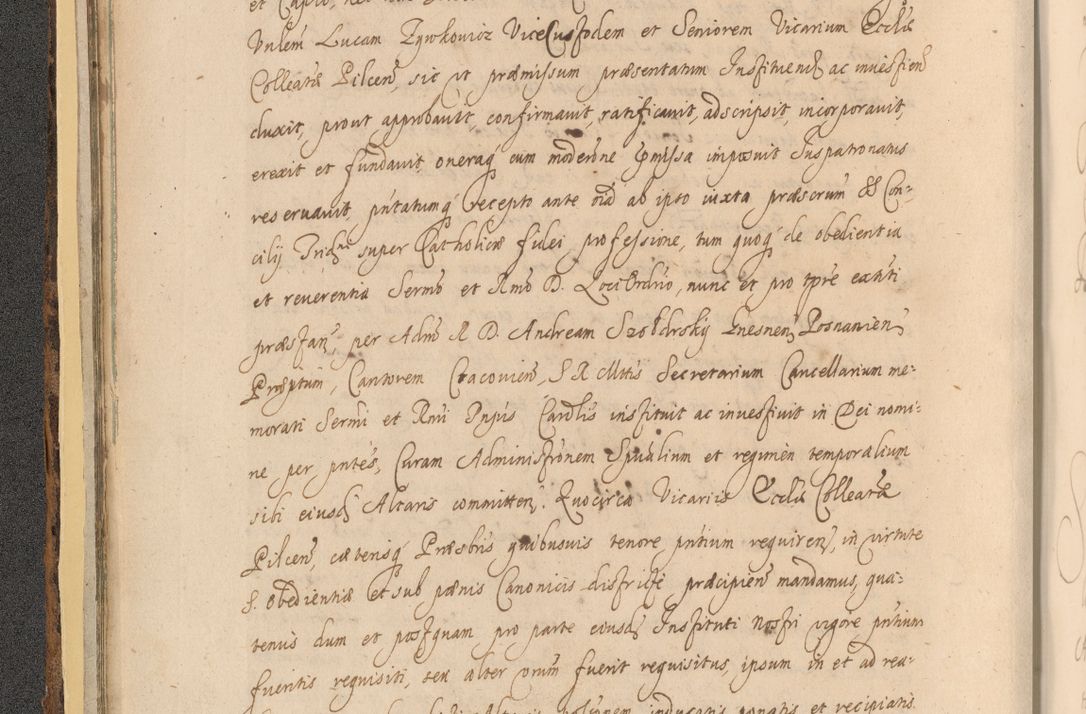 Vnlem Lucam Zywkowicz ViceCustodem et Seniorem Vicarium Ecclae
Colleatae Pilcen, sic ut praemissum praesentatum Instituend ac inuestien
duxit, prout approbauit, confirmauit, ratificauit, adscripsit, incorporauit,
erexit et fundauit, oneraq cum moderone ipmissa imposuit Juspatronatus
reseruauit, pntatumq recepto ante oia ab ipso iuxta praescrum SS Con-
cilij Tridni super Catholicae fidei professione, tum quoq de obedientia
et reuerentia Sermo et Rmo D. Loci Ordrio, nunc et pro tpre exnti
praestan, per Adm R D. Andream Szoldrskij Gnesnen, Posnanien,
Praeptum, Cantorem Cracovien, S R Mttis Secretarium Cancellarium me-
morati Sermi et Rmi Dnjus Cardlis instituit ac inuestiuit in Dei nomi-
ne per pntes, Curam Administronem Spualium et regimen temporalium
sibi eiusd Altaris committen. Quocirca Vicariis Ecclae Colleatae
Pilcen, caeterisq Praesbris quibusuis tenore pntium requiren, in virtute
S. obedientiae et sub paenis Canonicis districte praecipien mandamus, qua-
tenus dum et postquam pro parte eiusd Instituti Nostri vigore pntium
fueritis requisiti, seu alter vrum fuerit requisitus, ipsum in et ad rea-
et recipiatis